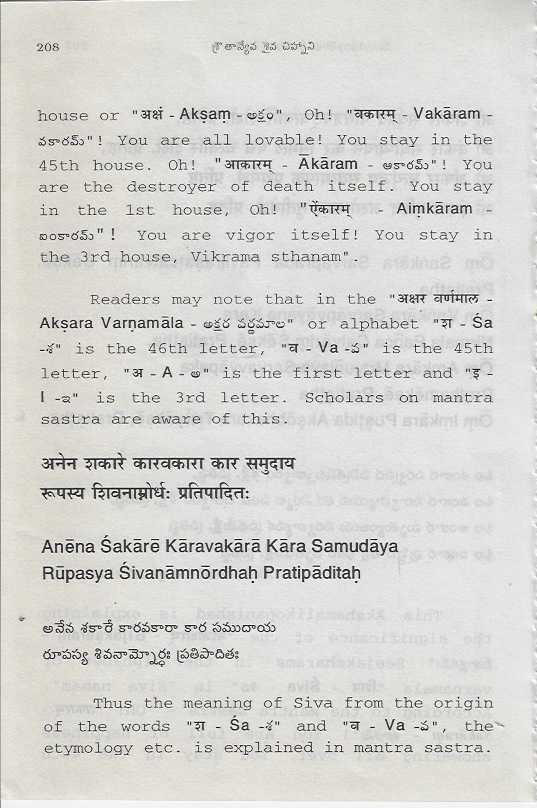 208 శ్రౌతాన్యేవ శైవ చిహ్నాని
house or "अक्षं - Akṣaṃ - అక్షం", Oh! "वकारम् - Vakāram -
వకారమ్"! You are all lovable! You stay in the
45th house. Oh! "आकारम् - Ākāram - ఆకారమ్"! You
are the destroyer of death itself. You stay
in the 1st house, Oh! "ऐंकारम् - Aiṃkāram -
ఐంకారమ్"! You are vigor itself! You stay in
the 3rd house, Vikrama sthanam".
Readers may note that in the "अक्षर वर्णमाल -
Akṣara Varṇamāla - అక్షర వర్ణమాల" or alphabet "श - Śa
-శ" is the 46th letter, "व - Va -వ" is the 45th
letter, "अ - A - అ" is the first letter and "इ -
I -ఇ" is the 3rd letter. Scholars on mantra
sastra are aware of this.
अनेन शकारे कारवकारा कार समुदाय
रूपस्य शिवनाम्नोर्धः प्रतिपादितः
Anēna Śakārē Kāravakārā Kāra Samudāya
Rūpasya Śivanāmnōrdhaḥ Pratipāditaḥ
అనేన శకారే కారవకారా కార సముదాయ
రూపస్య శివనామ్నోర్ధః ప్రతిపాదితః
Thus the meaning of Siva from the origin
of the words "श - Śa -శ" and "व - Va -వ", the
etymology etc. is explained in mantra sastra.